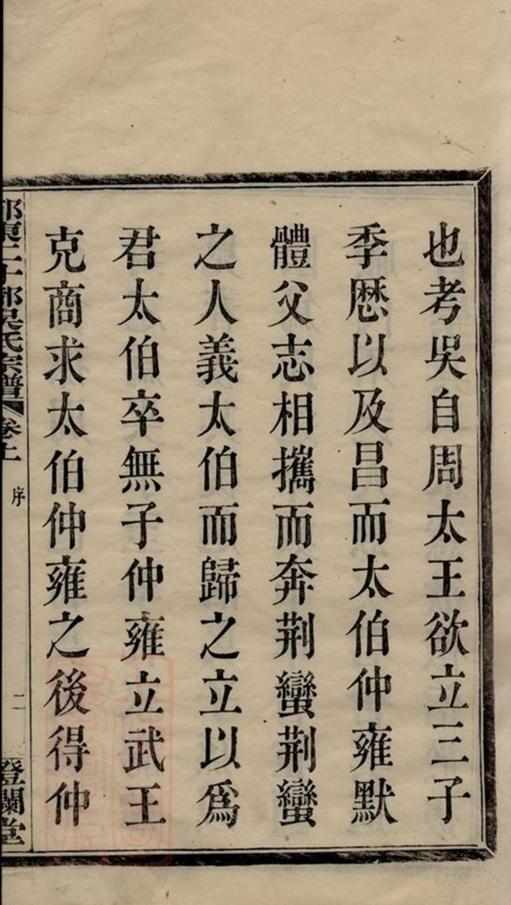 也考吳自周太王欲立三子
季歷以及昌而太伯仲雍默
體父志相攜而奔荆蠻荆蠻
之人義太伯而歸之立以爲
君太伯卒無子仲雍立武王
克商求太伯仲雍之後得仲
吳氏宗譜 卷上
序
二
澄瀾堂